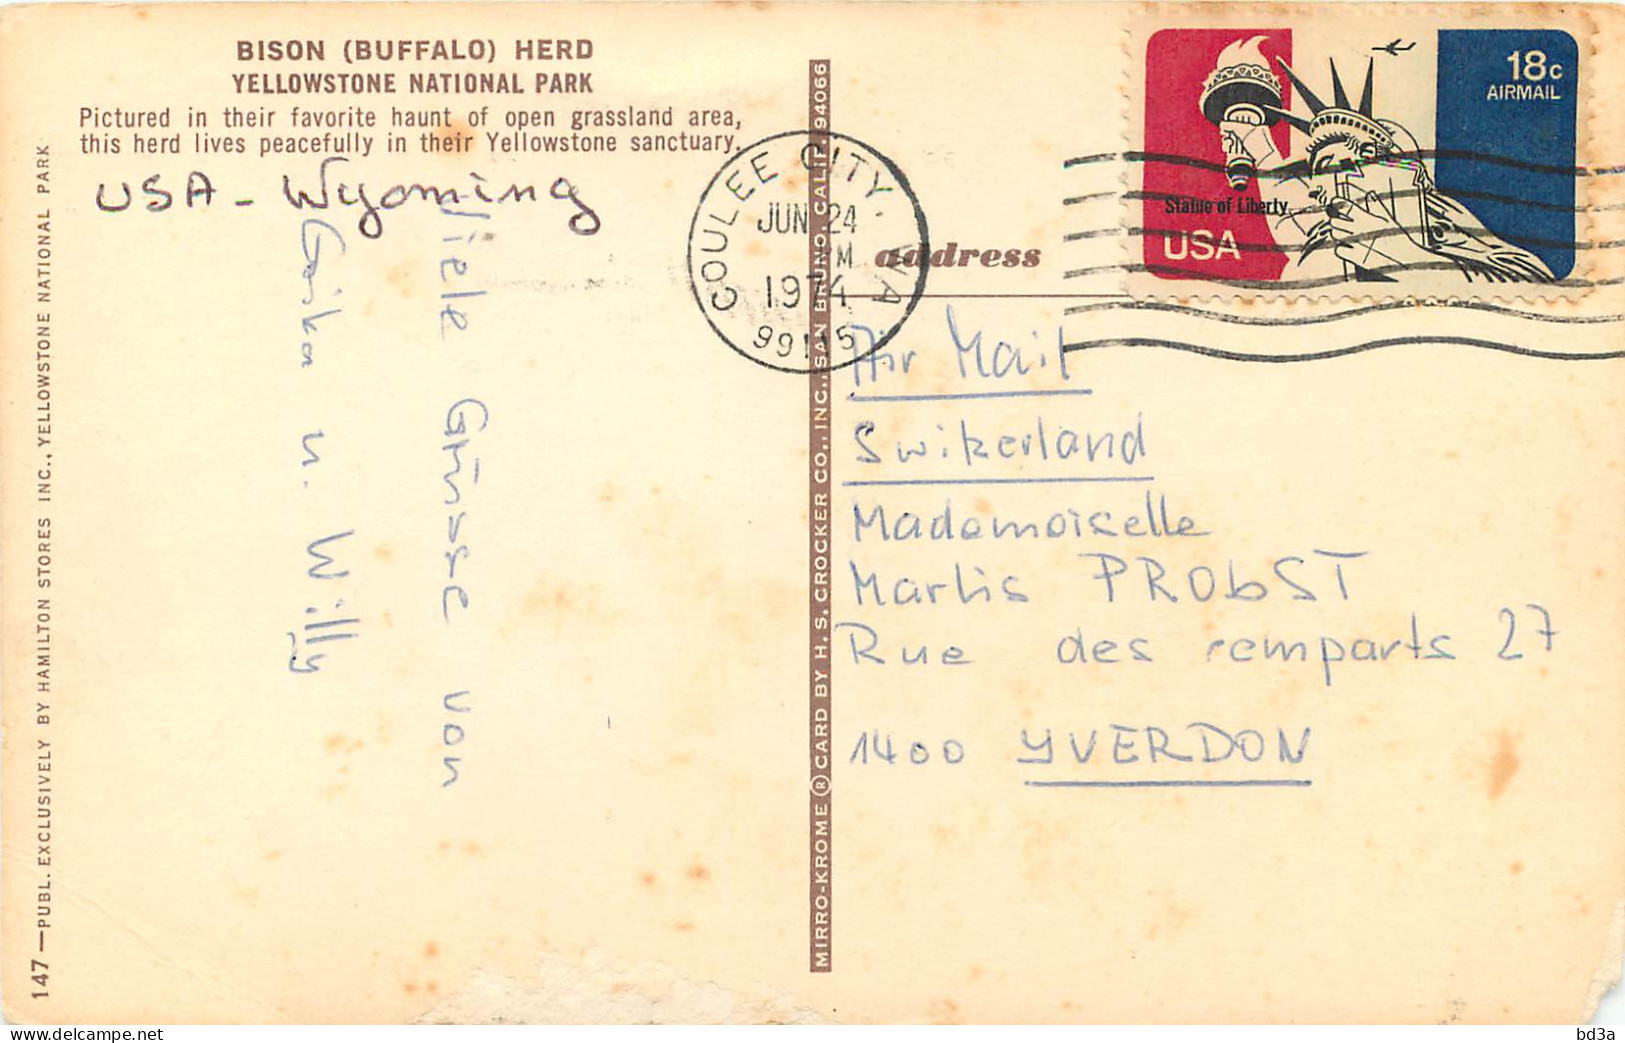 BISON (BUFFALO) HERD
YELLOWSTONE NATIONAL PARK
Pictured in their favorite haunt of open grassland area,
this herd lives peacefully in their Yellowstone sanctuary.
USA - Wyoming
Viele Grüsse von
u. Willy
147—PUBL. EXCLUSIVELY BY HAMILTON STORES INC., YELLOWSTONE NATIONAL PARK
MIRRO-KROME ® CARD BY H. S. CROCKER CO., INC., SAN BRUNO, CALIF. 94066
COULEE CITY, WA
JUN 24
PM
1974
99115
18c
AIRMAIL
Statue of Liberty
USA
address
Air Mail
Switzerland
Mademoiselle
Marlis PRObST
Rue des remparts 27
1400 YVERDON
bd3a